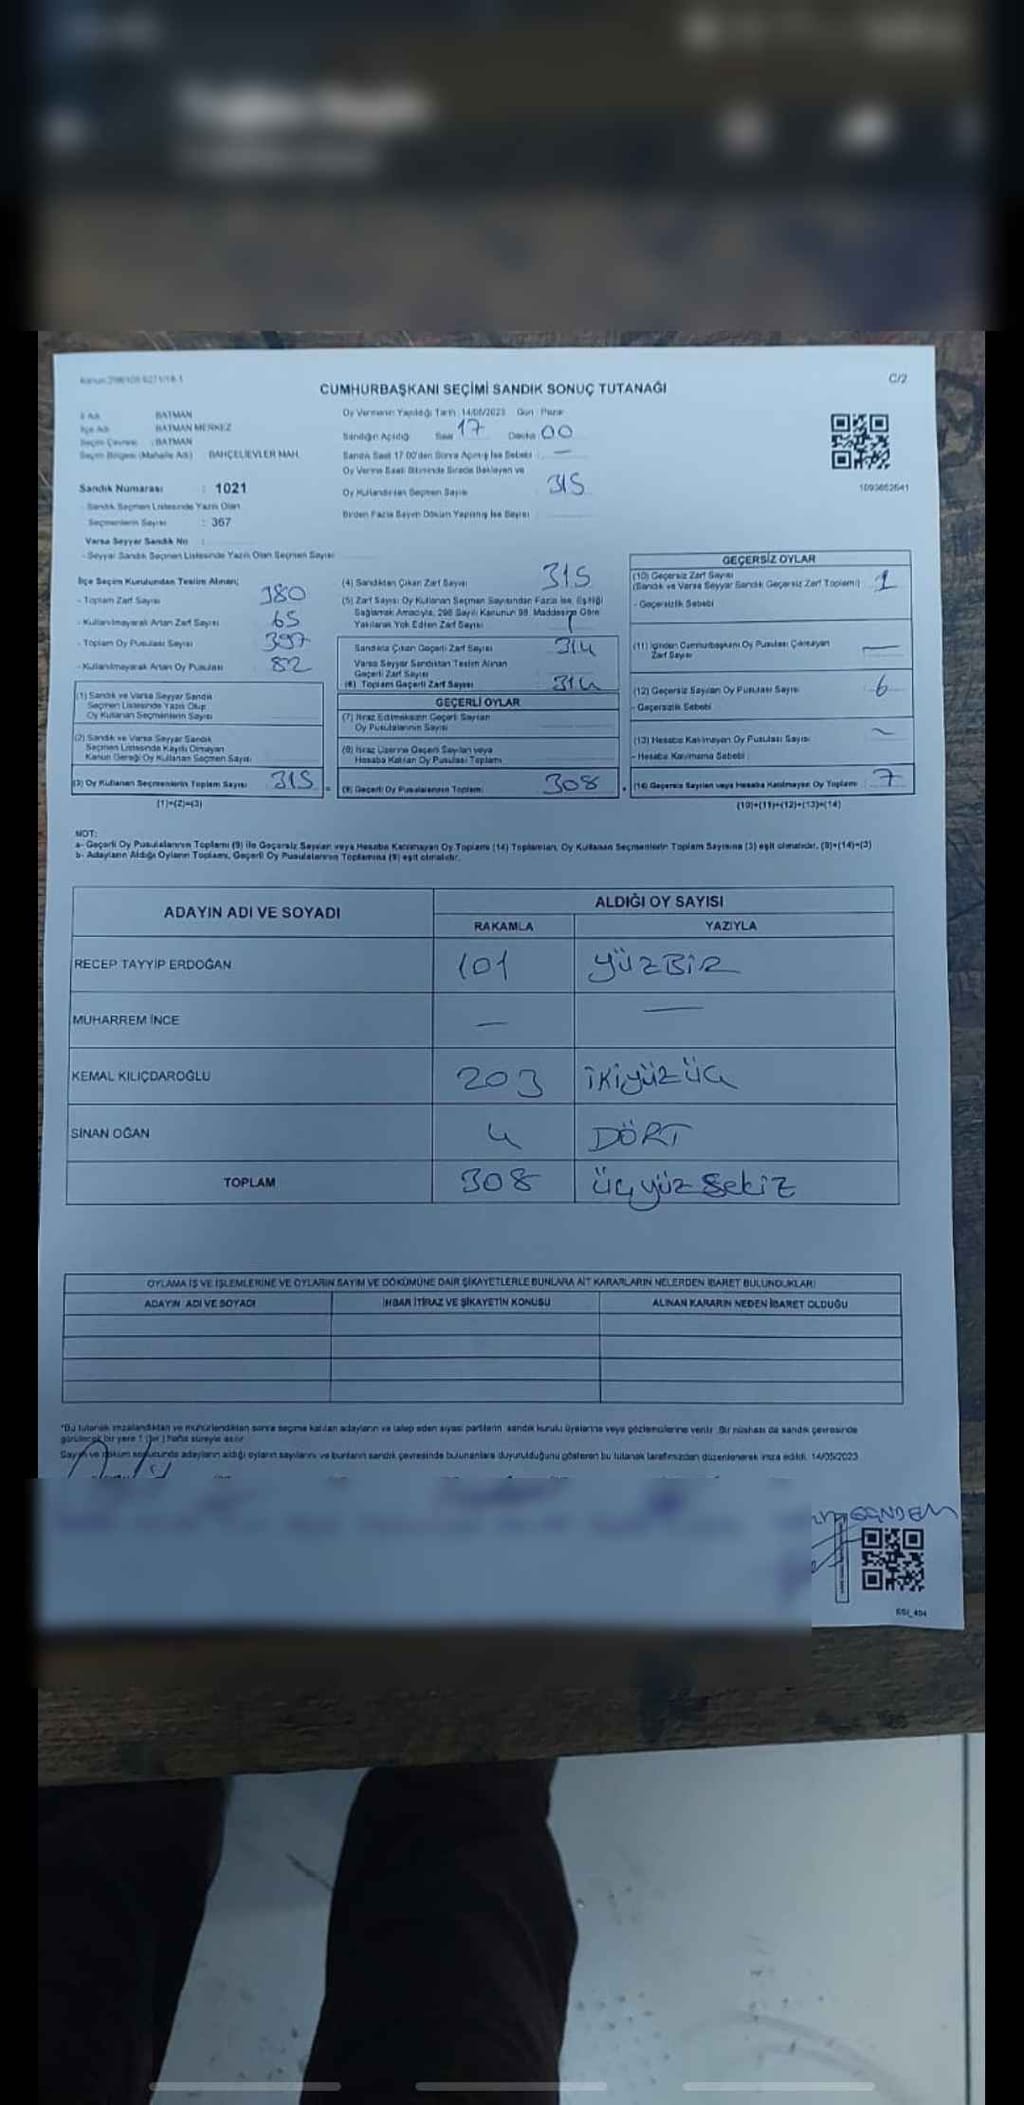 Kanun:298/108 6271/18-1
C/2
CUMHURBAŞKANI SEÇİMİ SANDIK SONUÇ TUTANAĞI
İl Adı : BATMAN
İlçe Adı : BATMAN MERKEZ
Seçim Çevresi : BATMAN
Seçim Bölgesi (Mahalle Adı) : BAHÇELİEVLER MAH.
Sandık Numarası : 1021
Sandık Seçmen Listesinde Yazılı Olan
Seçmenlerin Sayısı : 367
Varsa Seyyar Sandık No :
- Seyyar Sandık Seçmen Listesinde Yazılı Olan Seçmen Sayısı
Oy Vermenin Yapıldığı Tarih: 14/05/2023 Gün: Pazar
Sandığın Açıldığı Saat 17 Dakika 00
Sandık Saat 17.00'den Sonra Açılmış İse Sebebi : —
Oy Verme Saati Bitiminde Sırada Bekleyen ve
Oy Kullandırılan Seçmen Sayısı 315
Birden Fazla Sayım Döküm Yapılmış İse Sayısı :
1093662641
İlçe Seçim Kurulundan Teslim Alınan;
- Toplam Zarf Sayısı 380
- Kullanılmayarak Artan Zarf Sayısı 65
- Toplam Oy Pusulası Sayısı 397
- Kullanılmayarak Artan Oy Pusulası 82
(1) Sandık ve Varsa Seyyar Sandık
Seçmen Listesinde Yazılı Olup
Oy Kullanan Seçmenlerin Sayısı
(2) Sandık ve Varsa Seyyar Sandık
Seçmen Listesinde Kayıtlı Olmayan
Kanun Gereği Oy Kullanan Seçmen Sayısı
(3) Oy Kullanan Seçmenlerin Toplam Sayısı 315
(1)+(2)=(3)
(4) Sandıktan Çıkan Zarf Sayısı 315
(5) Zarf Sayısı Oy Kullanan Seçmen Sayısından Fazla İse, Eşitliği
Sağlamak Amacıyla, 298 Sayılı Kanunun 98. Maddesine Göre
Yakılarak Yok Edilen Zarf Sayısı
Sandıkta Çıkan Geçerli Zarf Sayısı 314
Varsa Seyyar Sandıktan Teslim Alınan
Geçerli Zarf Sayısı
(6) Toplam Geçerli Zarf Sayısı 314
GEÇERLİ OYLAR
(7) İtiraz Edilmeksizin Geçerli Sayılan
Oy Pusulalarının Sayısı
(8) İtiraz Üzerine Geçerli Sayılan veya
Hesaba Katılan Oy Pusulası Toplamı
(9) Geçerli Oy Pusulalarının Toplamı 308
GEÇERSİZ OYLAR
(10) Geçersiz Zarf Sayısı 1
(Sandık ve Varsa Seyyar Sandık Geçersiz Zarf Toplamı)
- Geçersizlik Sebebi
(11) İçinden Cumhurbaşkanı Oy Pusulası Çıkmayan —
Zarf Sayısı
(12) Geçersiz Sayılan Oy Pusulası Sayısı 6
- Geçersizlik Sebebi
(13) Hesaba Katılmayan Oy Pusulası Sayısı —
- Hesaba Katılmama Sebebi
(14) Geçersiz Sayılan veya Hesaba Katılmayan Oy Toplamı 7
(10)+(11)+(12)+(13)=(14)
NOT:
a- Geçerli Oy Pusulalarının Toplamı (9) ile Geçersiz Sayılan veya Hesaba Katılmayan Oy Toplamı (14) Toplamları, Oy Kullanan Seçmenlerin Toplam Sayısına (3) eşit olmalıdır. (9)+(14)=(3)
b- Adayların Aldığı Oyların Toplamı, Geçerli Oy Pusulalarının Toplamına (9) eşit olmalıdır.
ADAYIN ADI VE SOYADI
ALDIĞI OY SAYISI
RAKAMLA YAZIYLA
RECEP TAYYİP ERDOĞAN 101 YÜZBİR
MUHARREM İNCE — —
KEMAL KILIÇDAROĞLU 203 İKİYÜZÜÇ
SİNAN OĞAN 4 DÖRT
TOPLAM 308 ÜÇYÜZSEKİZ
OYLAMA İŞ VE İŞLEMLERİNE VE OYLARIN SAYIM VE DÖKÜMÜNE DAİR ŞİKAYETLERLE BUNLARA AİT KARARLARIN NELERDEN İBARET BULUNDUKLARI
ADAYIN ADI VE SOYADI İHBAR İTİRAZ VE ŞİKAYETİN KONUSU ALINAN KARARIN NEDEN İBARET OLDUĞU
*Bu tutanak imzalandıktan ve mühürlendikten sonra seçime katılan adayların ve talep eden siyasi partilerin sandık kurulu üyelerine veya gözlemcilerine verilir. Bir nüshası da sandık çevresinde
görülecek bir yere 1 (bir) hafta süreyle asılır.
Sayım ve döküm sonucunda adayların aldığı oyların sayılarını ve bunların sandık çevresinde bulunanlara duyurulduğunu gösteren bu tutanak tarafımızdan düzenlenerek imza edildi. 14/05/2023